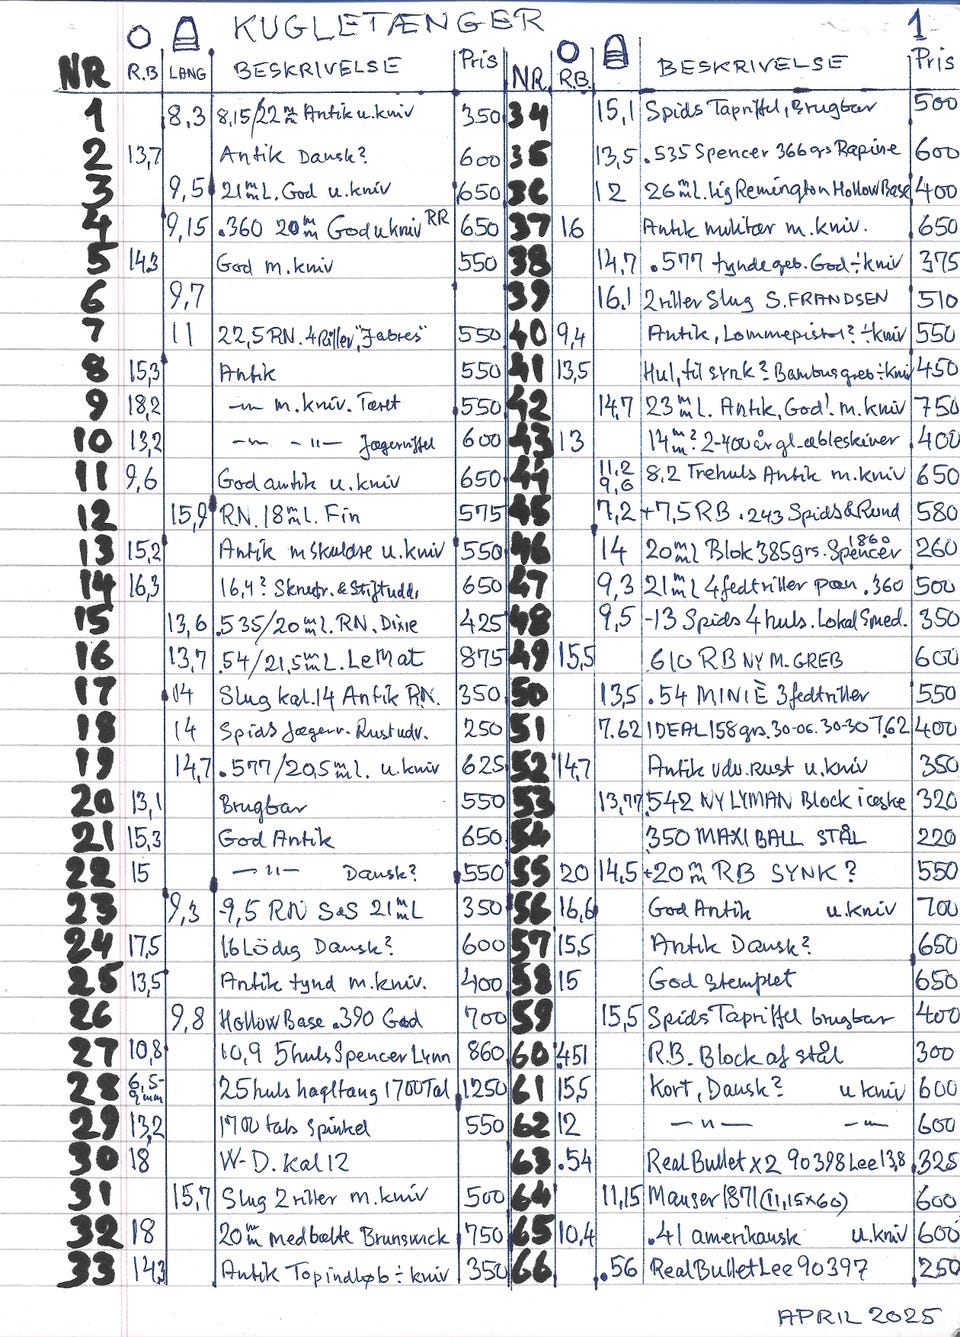 KUGLETÆNGER 1
NR R.B LANG BESKRIVELSE Pris NR R.B. BESKRIVELSE Pris
1 8,3 8,15/22mm Antik u.kniv 350 34 15,1 Spids Tapriffel, Brugbar 500
2 13,7 Antik Dansk? 600 35 13,5 .535 Spencer 366grs Rapine 600
3 9,5 21mm L. God u.kniv 650 36 12 26mm L. lig Remington Hollow Base 400
4 9,15 .360 20mm God u kniv RR 650 37 16 Antik militær m.kniv. 650
5 14,3 God m.kniv 550 38 14,7 .577 tynde geb. God ÷ kniv 375
6 9,7 39 16.1 2 riller Slug S.FRANDSEN 510
7 11 22,5 RN. 4 Riller, "Jabres" 550 40 9,4 Antik, Lommepistol? ÷kniv 550
8 15,3 Antik 550 41 13,5 Hul, til synk? Bambusgreb÷kniv 450
9 18,2 —〃— m.kniv. Tæret 550 42 14,7 23mm L. Antik, God!. m.kniv 750
10 13,2 —〃— -〃— Jægerriffel 600 43 13 14mm? 2-400 år gl-æbleskiver 400
11 9,6 God antik u.kniv 650 44 11,2 9,6 8,2 Trehuls Antik m.kniv 650
12 15,9 RN. 18mm L. Fin 575 45 7,2 +7,5 RB .243 Spids & Rund 580
13 15,2 Antik m skuldre u.kniv 550 46 14 20mm L Blok 385grs. Spencer 1860 260
14 16,3 16,4? Skruefr. & Stiftudd. 650 47 9,3 21mm L 4 fedtriller pæn .360 500
15 13,6 .535/20mm L. RN. Dixie 425 48 9,5 -13 Spids 4 huls. Lokal Smed. 350
16 13,7 .54/21,5mm L. LeMat 875 49 15,5 .610 RB NY M. GREB 600
17 14 Slug kal.14 Antik RN. 350 50 13,5 .54 MINIÈ 3 fedtriller 550
18 14 Spids Jægerr. Rust udv. 250 51 7.62 IDEAL 158grs. 30-06. 30-30 7,62 400
19 14,7 .577/20,5mm L. u.kniv 625 52 14,7 Antik udv. rust u.kniv 350
20 13,1 Brugbar 550 53 13,77 .542 NY LYMAN Block i æske 320
21 15,3 God Antik 650 54 .350 MAXI BALL STÅL 220
22 15 —〃— Dansk? 550 55 20 14,5 +20mm RB SYNK? 550
23 9,3 -9,5 RN S&S 21mm L 350 56 16,6 God Antik u.kniv 700
24 17,5 16 Lödig Dansk? 600 57 15,5 Antik Dansk? 650
25 13,5 Antik tynd m.kniv. 400 58 15 God stemplet 650
26 9,8 Hollow Base .390 God 700 59 15,5 Spids Tapriffel brugbar 400
27 10,8 10,9 5 huls Spencer Lynn 860 60 .451 R.B. Block af stål 300
28 6,5-9mm 25 huls hagltang 1700 Tal 1250 61 15,5 Kort, Dansk? u kniv 600
29 13,2 1700 tals spinkel 550 62 12 —〃— -〃- 600
30 18 W-D. Kal 12 63 .54 Real Bullet x2 90398 Lee 13,8 325
31 15,7 Slug 2 riller m.kniv 500 64 11,15 Mauser 1871 (11,15x60) 600
32 18 20mm med bælte Brunswick 750 65 10,4 .41 amerikansk u.kniv 600
33 14,3 Antik Topindløb ÷ kniv 350 66 .56 Real Bullet Lee 90397 250
APRIL 2025